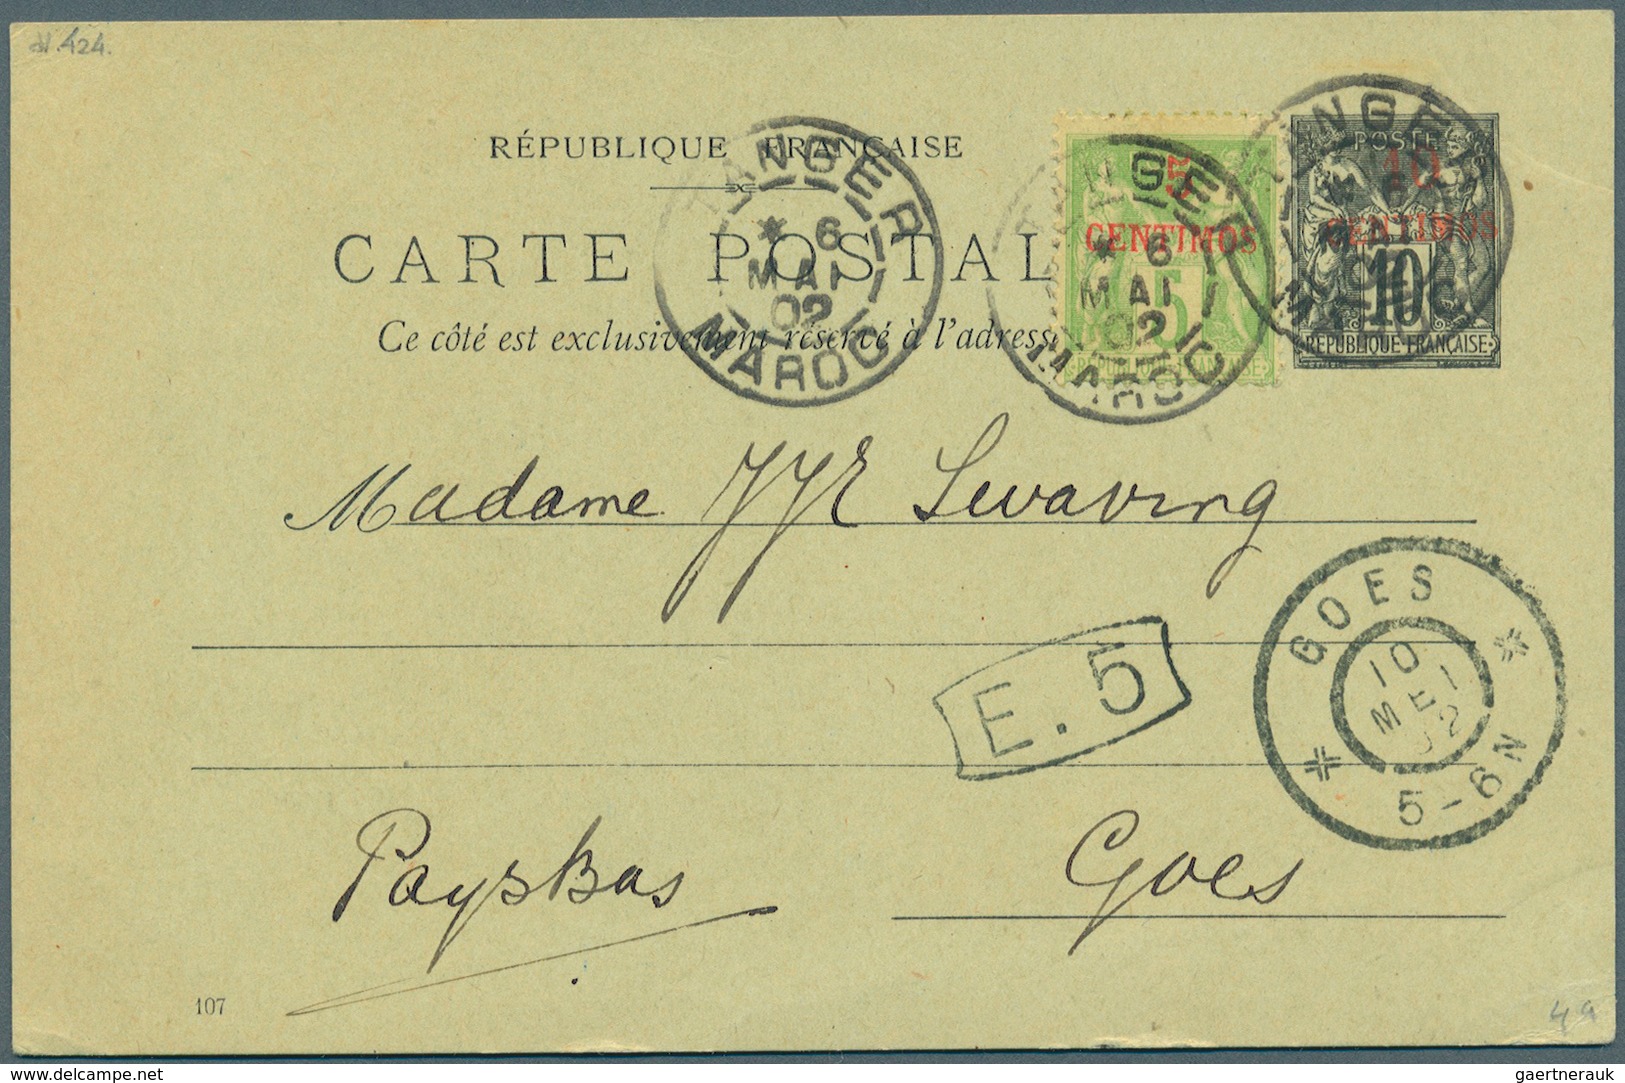 N. 424.
RÉPUBLIQUE FRANÇAISE
CARTE POSTAL
Ce côté est exclusivement réservé à l'adresse
TANGER
* 6
MAI
02
MAROC
5
CENTIMOS
5
RÉPUBLIQUE FRANÇAISE
TANGER
* 6
MAI
02
MAROC
POSTE
10
CENTIMOS
10
RÉPUBLIQUE FRANÇAISE
TANGER
Madame JJE Swaving
E. 5
GOES
10
MEI
02
5-6N
Pays Bas
Goes
107
4a
www.delcampe.net
gaertnerauk